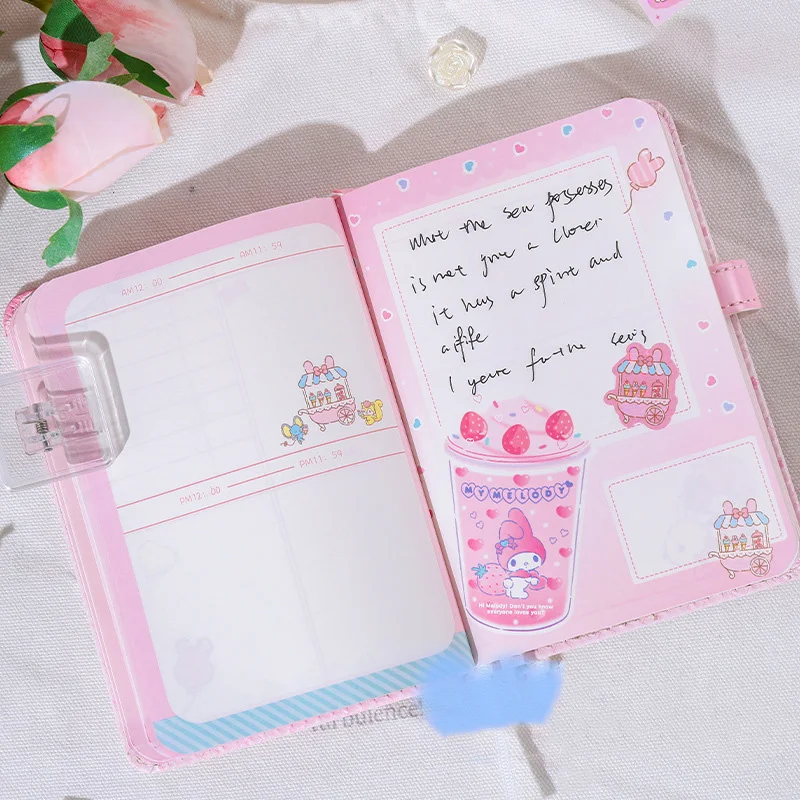 AM12: 00 AM11: 59
PM12: 00 PM11: 59
what the sea possesses
is not give a lover
it has a spirit and
a life
I for the
MY MELODY
Hi Melody! Don't you know
everyone loves you?